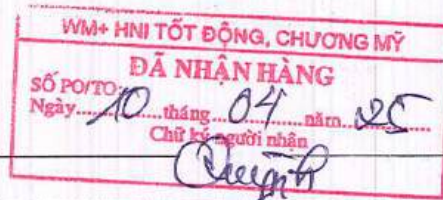 WM+ HNI TỐT ĐỘNG, CHƯƠNG MỸ
ĐÃ NHẬN HÀNG
SỐ PO/TO:
Ngày.....10.....tháng.....04.....năm.....25
Chữ ký người nhận
Quỳnh